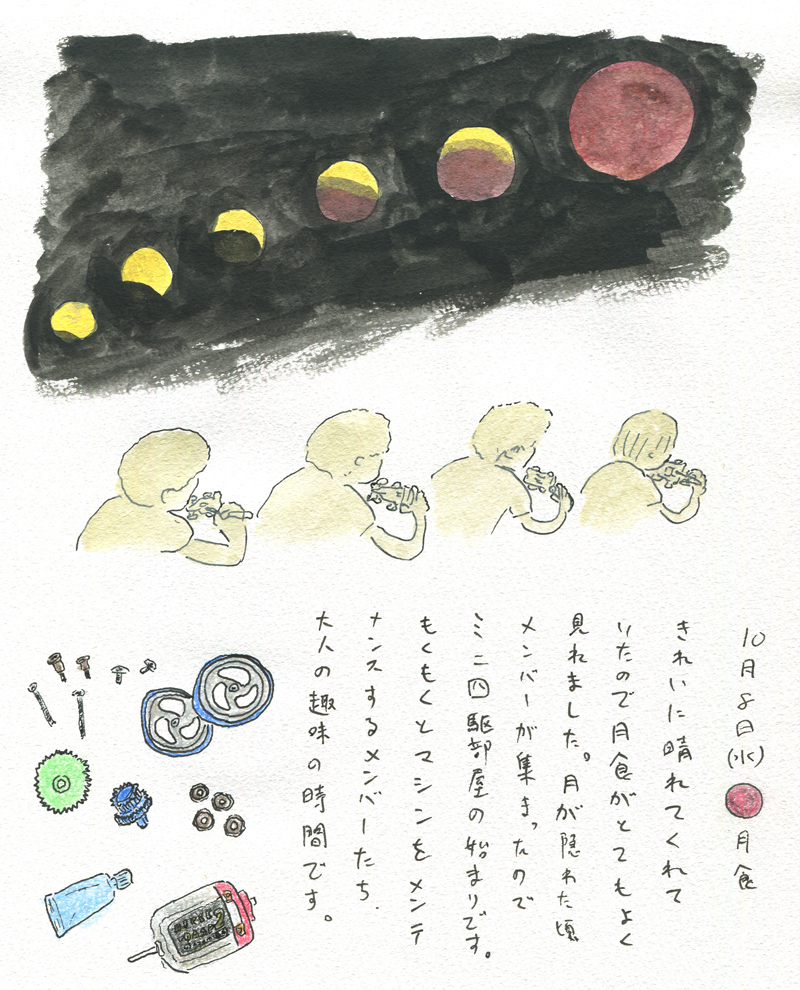 10月8日(水) 月食
きれいに晴れてくれて
いたので月食がとてもよく
見れました。月が隠れた頃
メンバーが集まったので
ミニ四駆部屋の始まりです。
もくもくとマシンをメンテ
ナンスするメンバーたち.
大人の趣味の時間です。